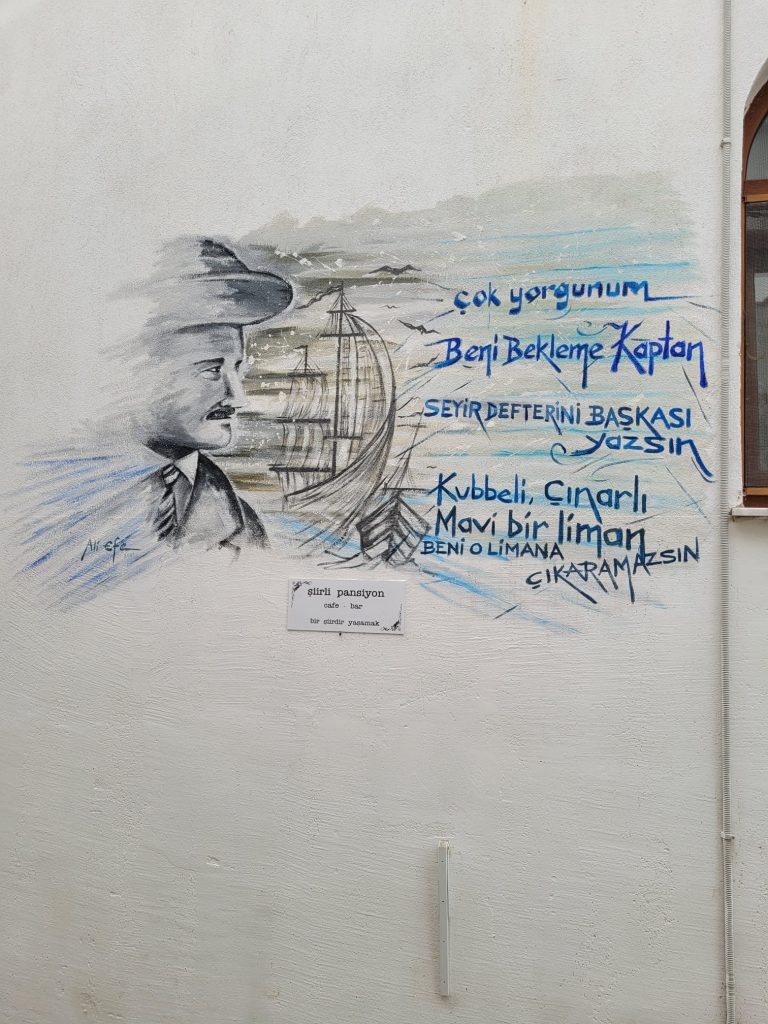 çok yorgunum
Beni Bekleme Kaptan
SEYİR DEFTERİNİ BAŞKASI
yazsın
Kubbeli, Çınarlı
Mavi bir liman
BENİ O LİMANA
ÇIKARAMAZSIN
Ali Efe
şiirli pansiyon
cafe - bar
bir şiirdir yaşamak